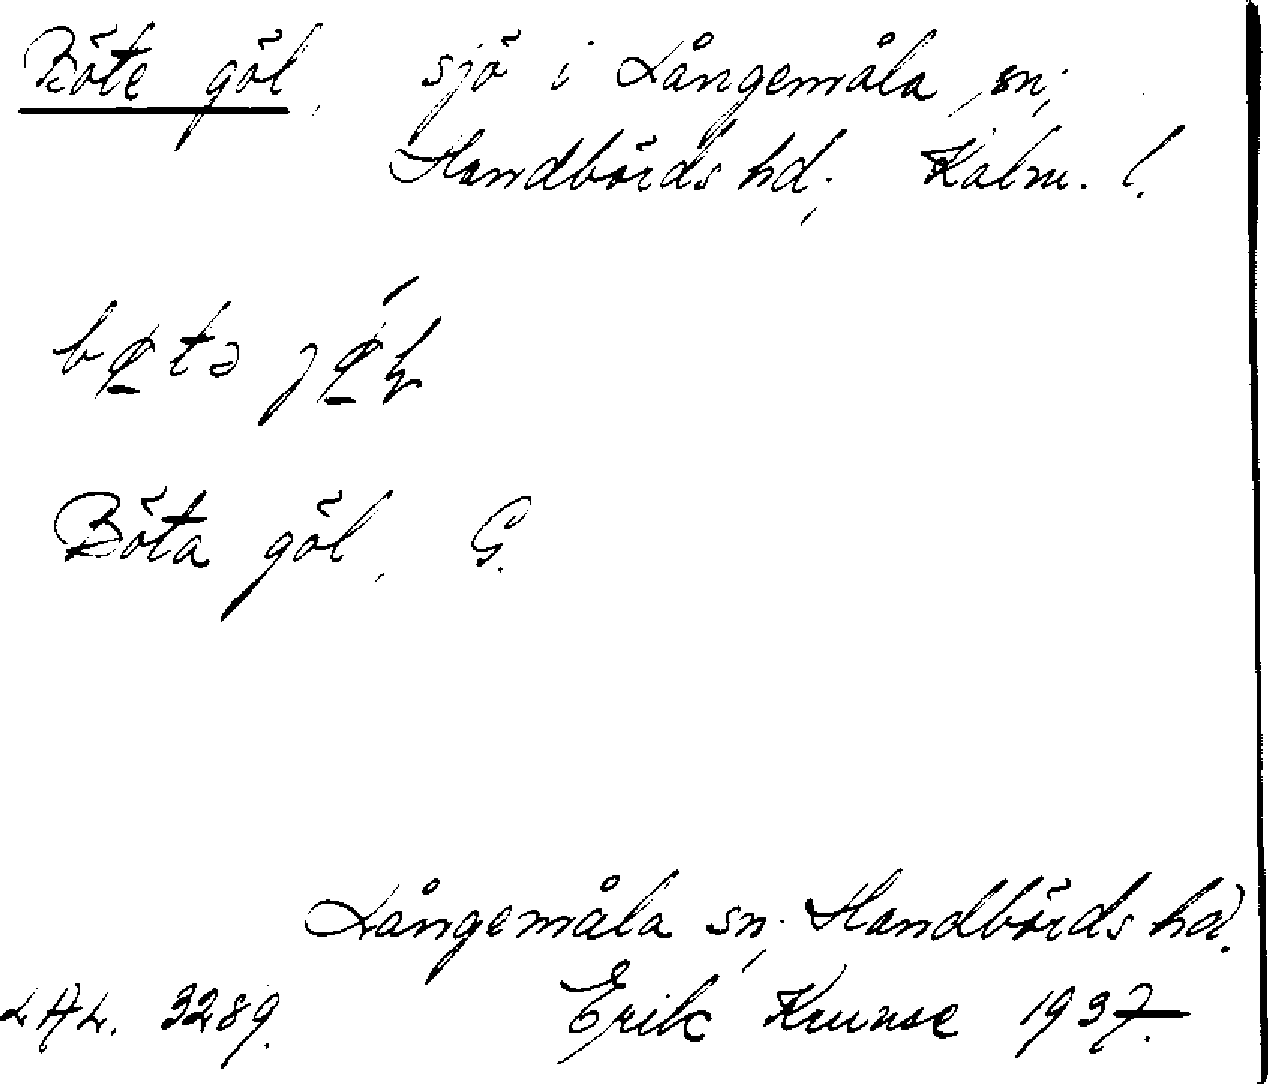 Böte göl, sjö i Långemåla sn;
Handbörds hd; Kalm. l.
bø̠tə jǿ̠ɫ
Böta göl, G.
Långemåla sn; Handbörds hd.
LAL. 3289. Erik Krunse 1937.